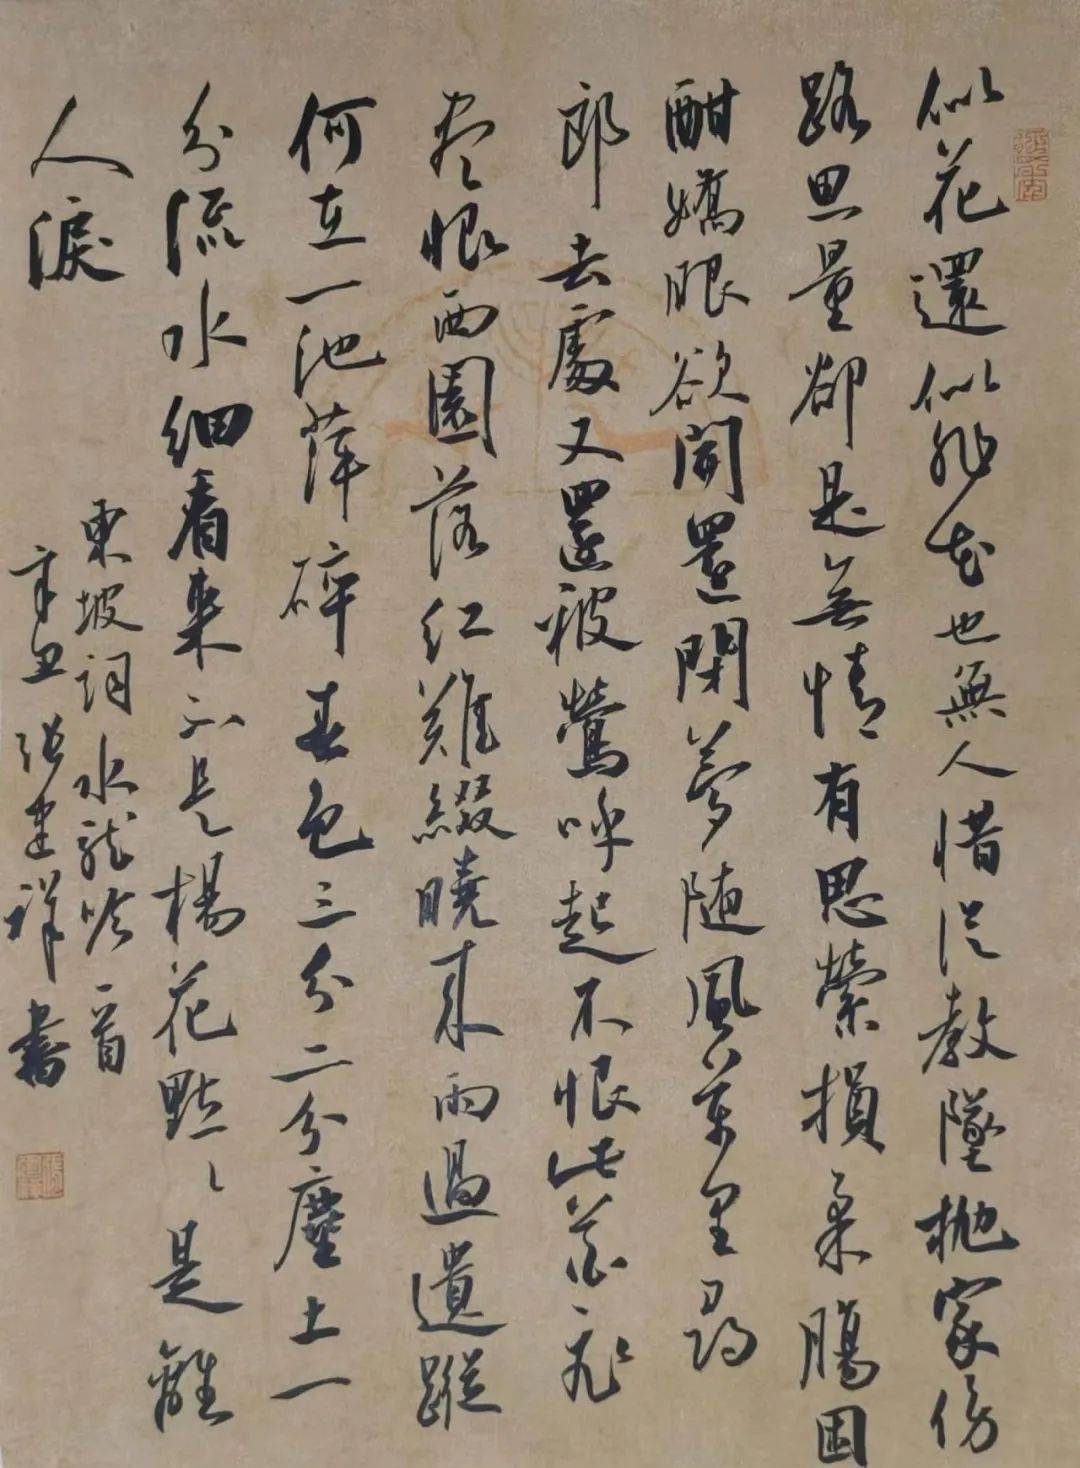 似花還似非花也無人惜從教墜抛家傍
路思量卻是無情有思縈損柔腸困
酣嬌眼欲開還閉夢随風萬里尋
郎去處又還被鶯呼起不恨此花飛
盡恨西園落红難綴曉來雨過遺蹤
何在一池萍碎春色三分二分塵土一
分流水細看來不是楊花點〻是離
人淚
東坡詞水龍吟一首
辛丑張建祥書